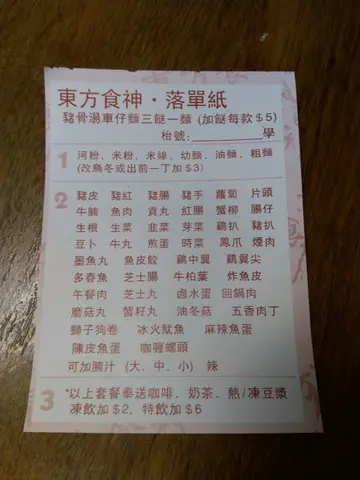 東方食神・落單紙
豬骨湯車仔麵三餸一麵 (加餸每款$5)
枱號:________學
1 河粉、米粉、米線、幼麵、油麵、粗麵
(改烏冬或出前一丁加$3)
2 豬皮 豬紅 豬腸 豬手 蘿蔔 片頭
牛腩 魚肉 貢丸 紅腸 蟹柳 腸仔
生根 生菜 韭菜 芽菜 鷄扒 豬扒
豆卜 牛丸 煎蛋 時菜 鳳爪 煙肉
墨魚丸 魚皮餃 鷄中翼 鷄翼尖
多春魚 芝士腸 牛柏葉 炸魚皮
午餐肉 芝士丸 鹵水蛋 回鍋肉
磨菇丸 蟹籽丸 油冬菇 五香肉丁
獅子狗卷 冰火魷魚 麻辣魚蛋
陳皮魚蛋 咖喱螺頭
可加腩汁 (大、中、小) 辣
3 *以上套餐奉送咖啡、奶茶、熱/凍豆漿
凍飲加$2、特飲加$6